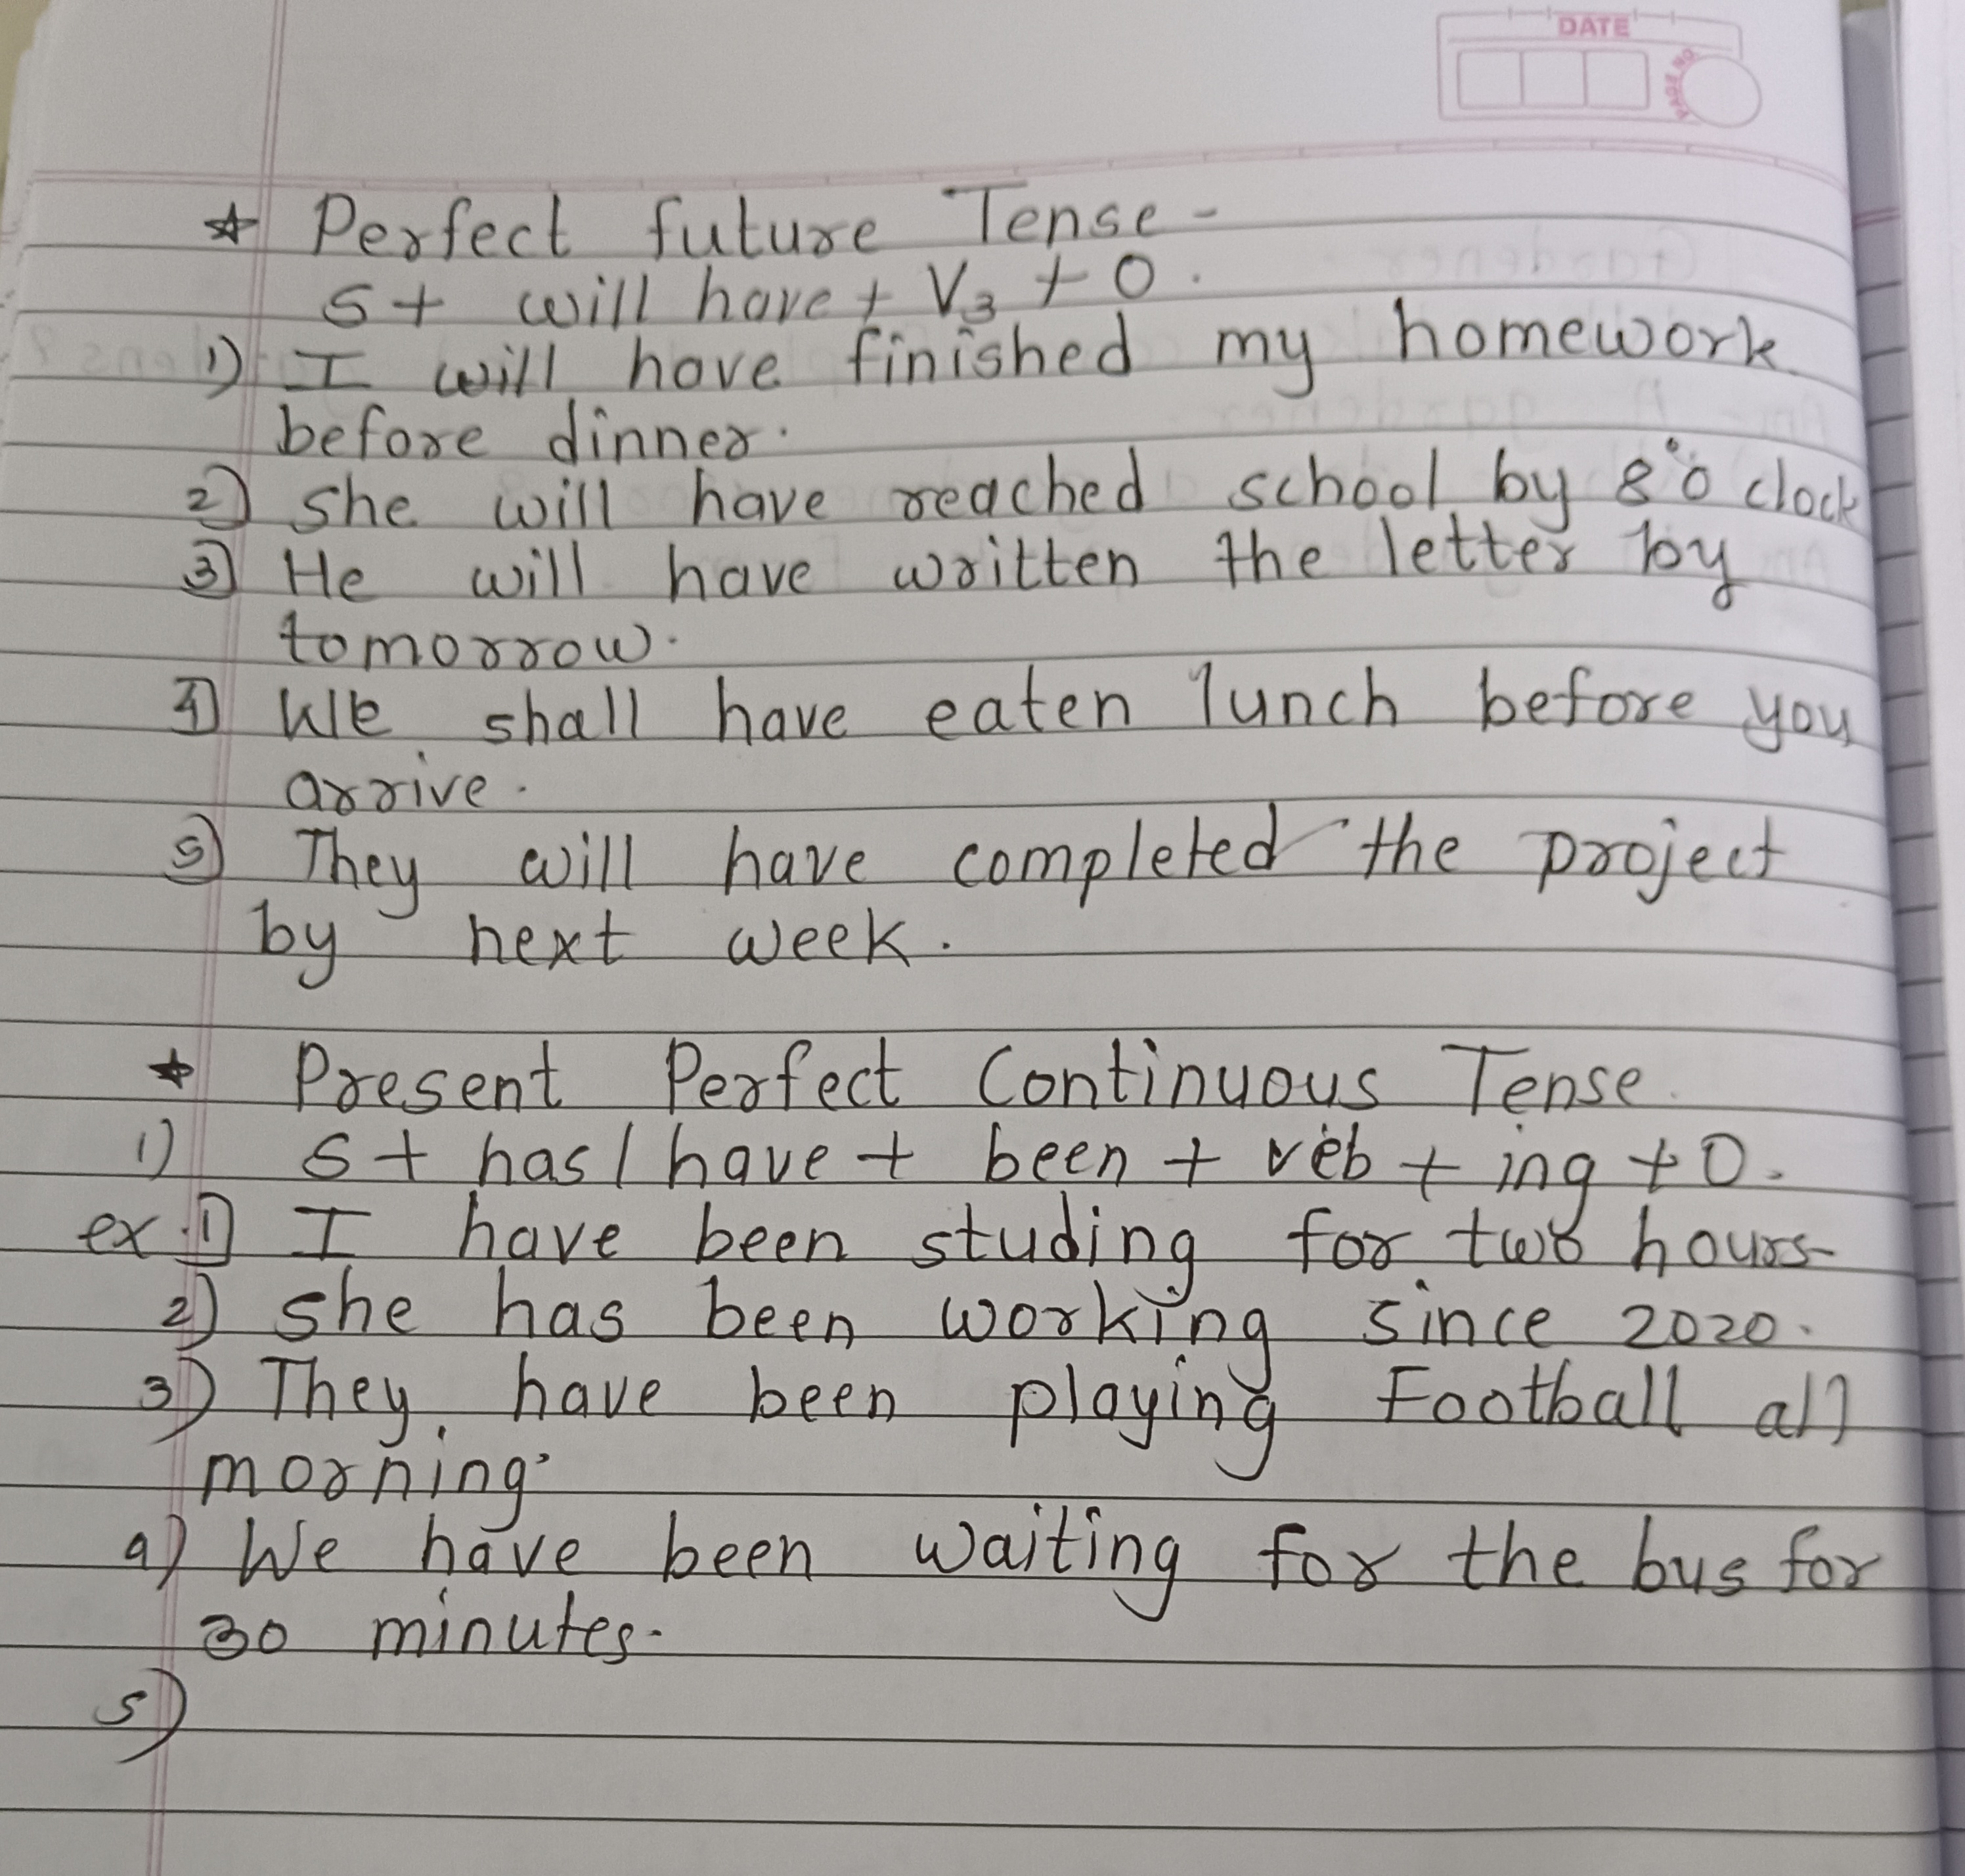 DATE
PAGE NO.
☆ Perfect future Tense -
S + will have + V3 + O.
1) I will have finished my homework
before dinner.
2) She will have reached school by 8°o clock
3) He will have written the letter by
tomorrow.
4) We shall have eaten lunch before you
arrive.
5) They will have completed the project
by next week.
☆ Present Perfect Continuous Tense.
1) S + has / have + been + veb + ing + O.
ex. 1) I have been studing for two hours-
2) she has been working since 2020.
3) They have been playing Football all
morning.
4) We have been waiting for the bus for
30 minutes.
5)